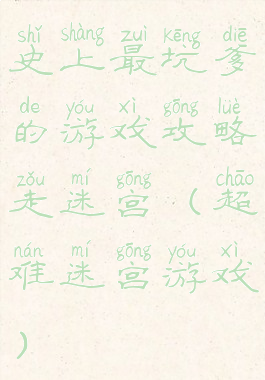 shǐ shàng zuì kēng diē
史上最坑爹
de yóu xì gōng lüè
的游戏攻略
zǒu mí gōng chāo
走迷宫（超
nán mí gōng yóu xì
难迷宫游戏
）